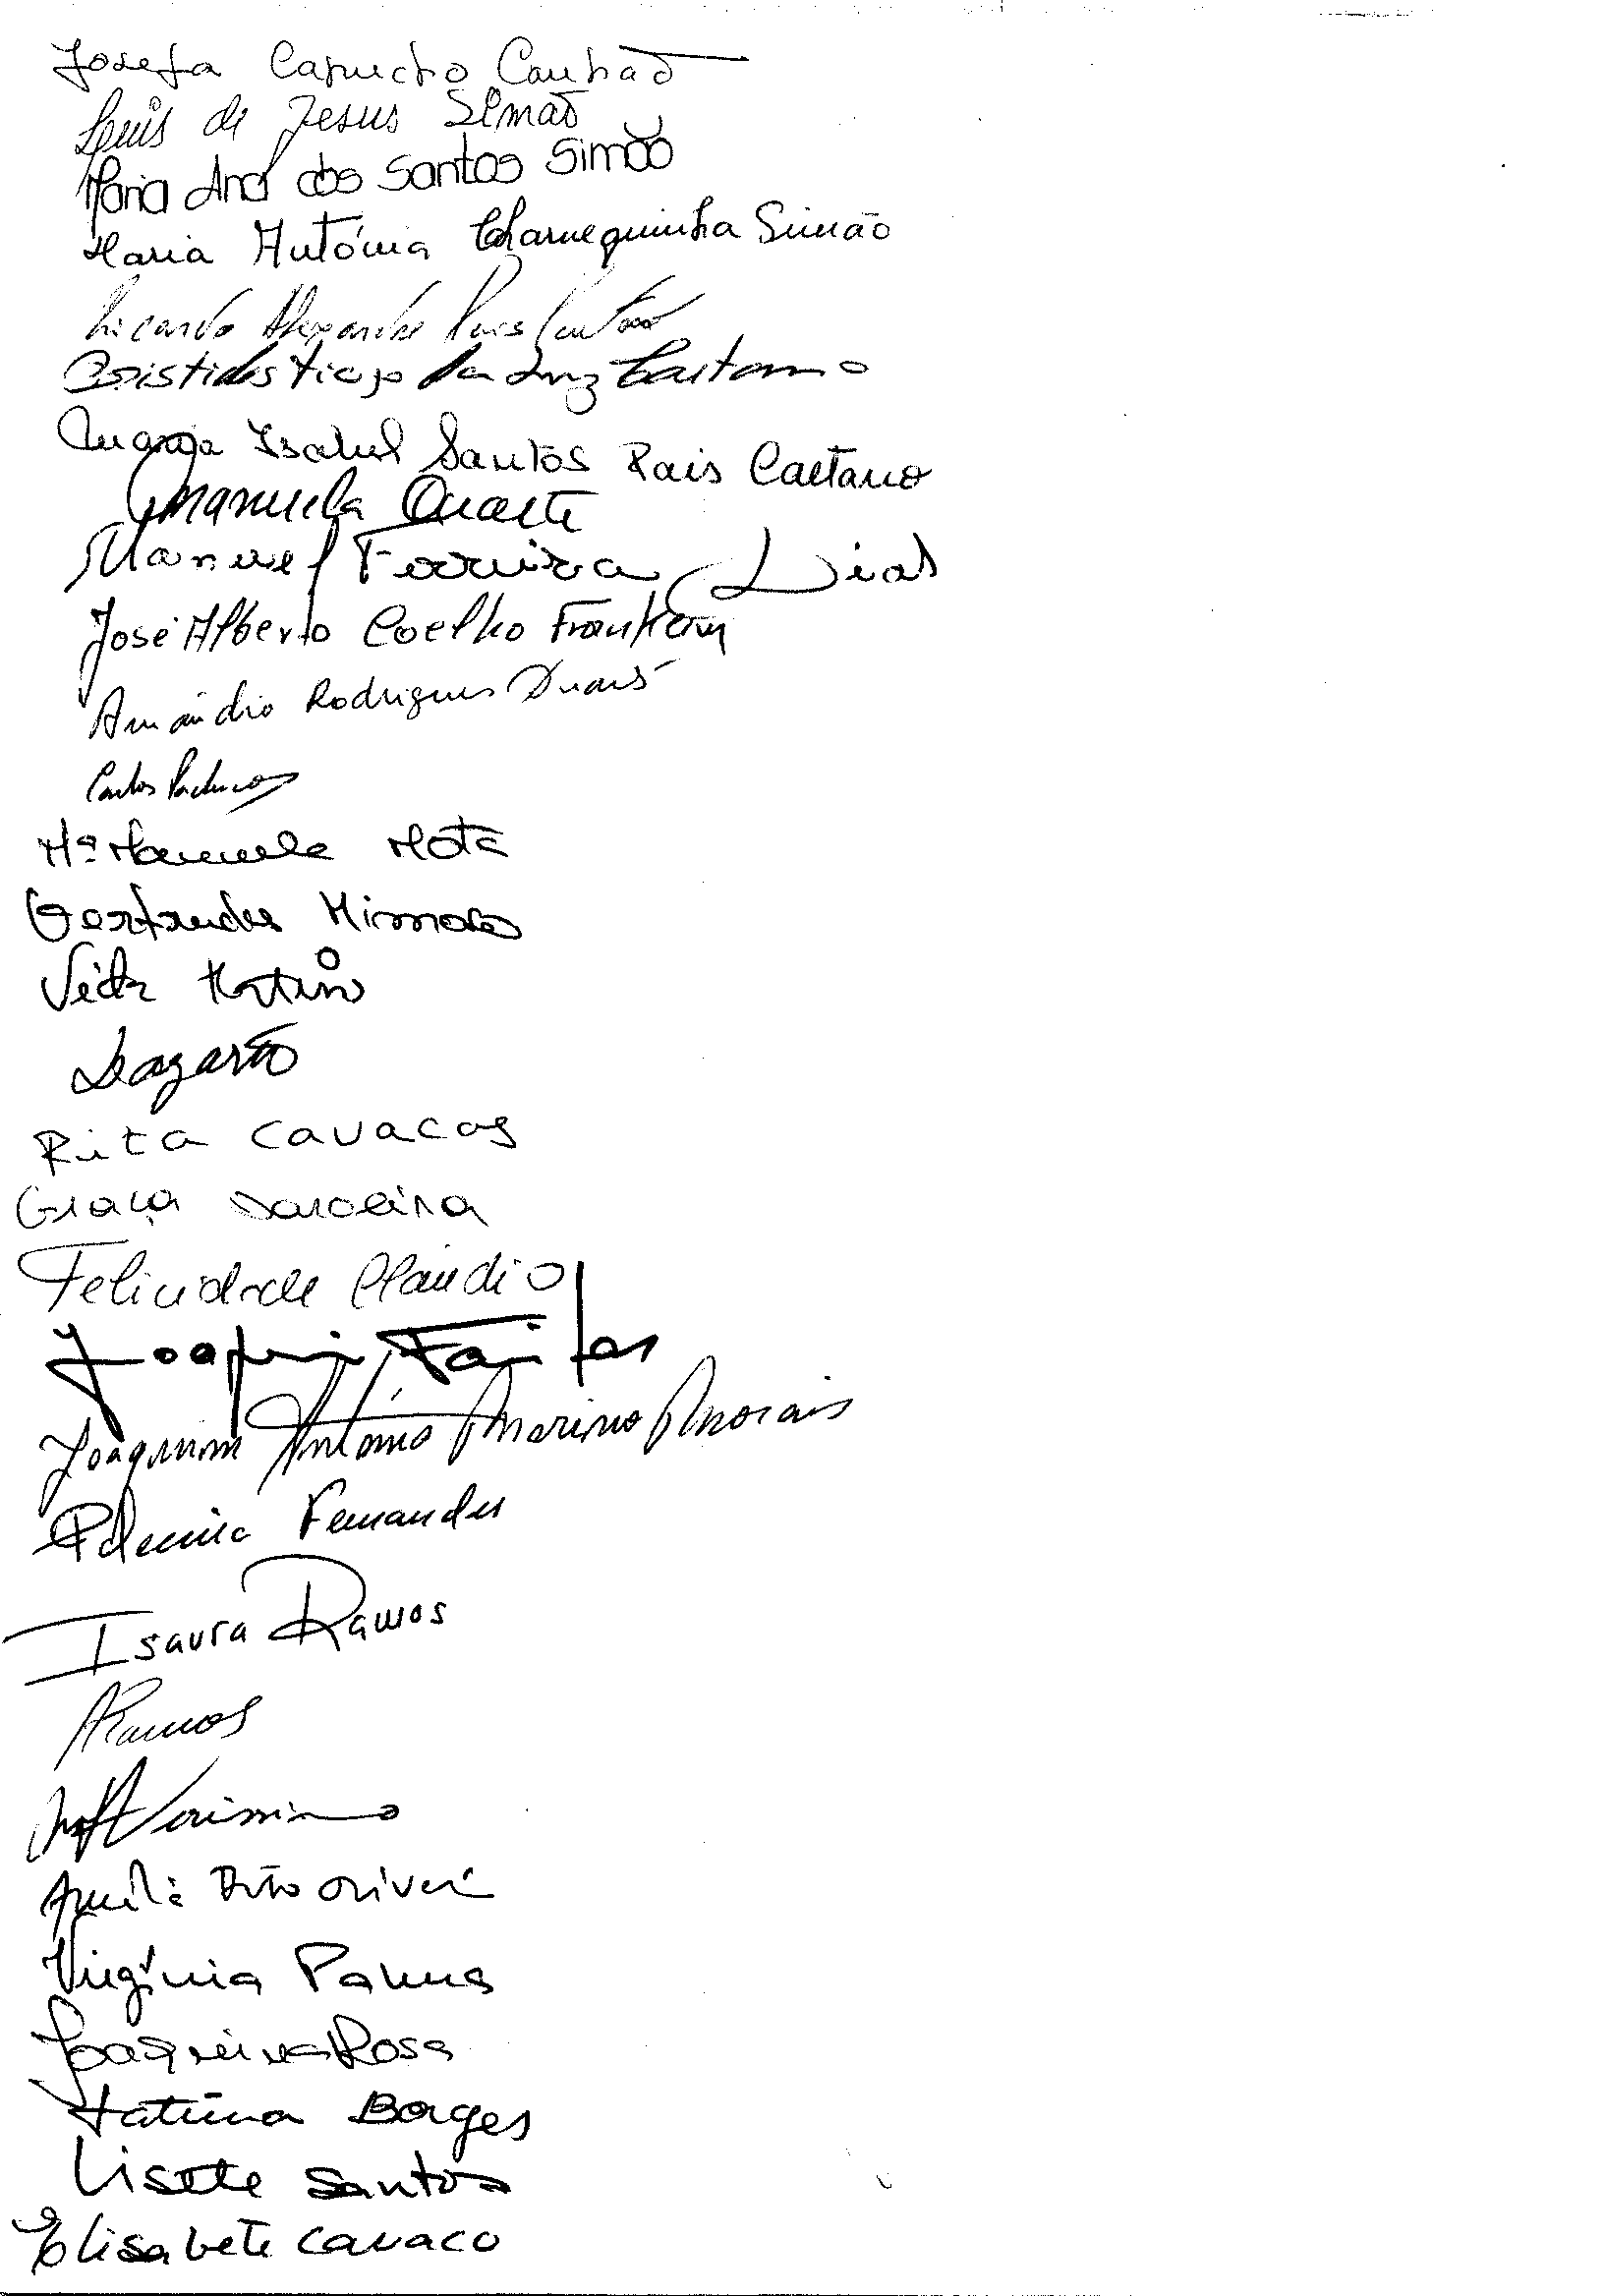 Josefa Capucho Canhão
Luís de Jesus Simão
Maria Ana dos Santos Simão
Maria Antónia Charnequinha Simão
Ricardo Alexandre Pais
Aristides Tiago da Luz Caetano
Maria Isabel Santos Pais Caetano
Manuela Duarte
Manuel Ferreira Dias
José Alberto Coelho
Amândio Rodrigues
Carlos Pacheco
Mª Manuela Mota
Gertrudes Mimoso
Martins
Lagarto
Rita Cavacas
Graça
Felicidade Claudio
Joaquim
Joaquim António Marino Morais
Fernandes
Isaura Ramos
ARamos
Verissimo
Brito Oliveira
Virgínia Palma
Joaquina Rosa
Fatima Borges
Lisete Santos
Elisabete Cavaco